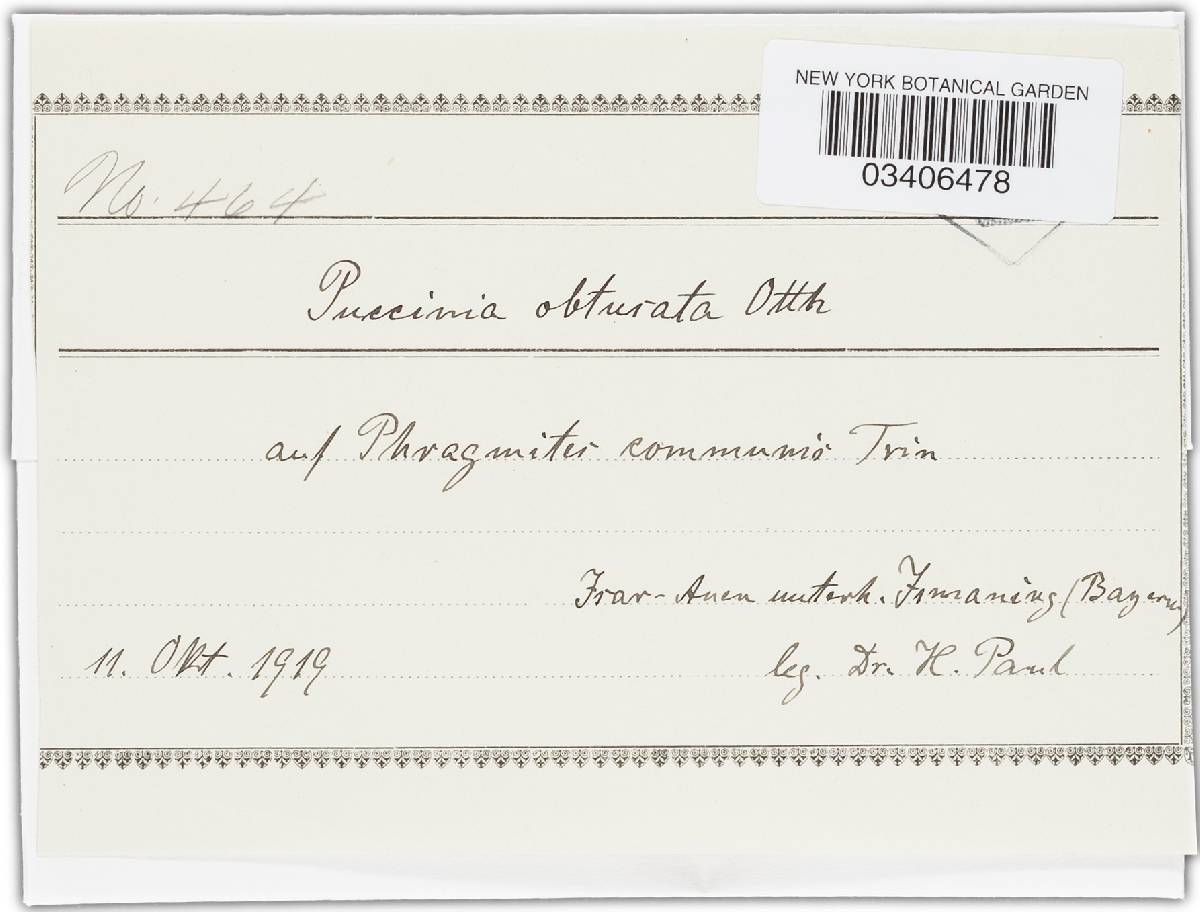 NEW YORK BOTANICAL GARDEN
03406478
No. 464
Puccinia obtusata Otth
auf Phragmites communis Trin
Isar-Auen unterh. Ismaning (Bayern)
11. Okt. 1919
leg. Dr. H. Paul